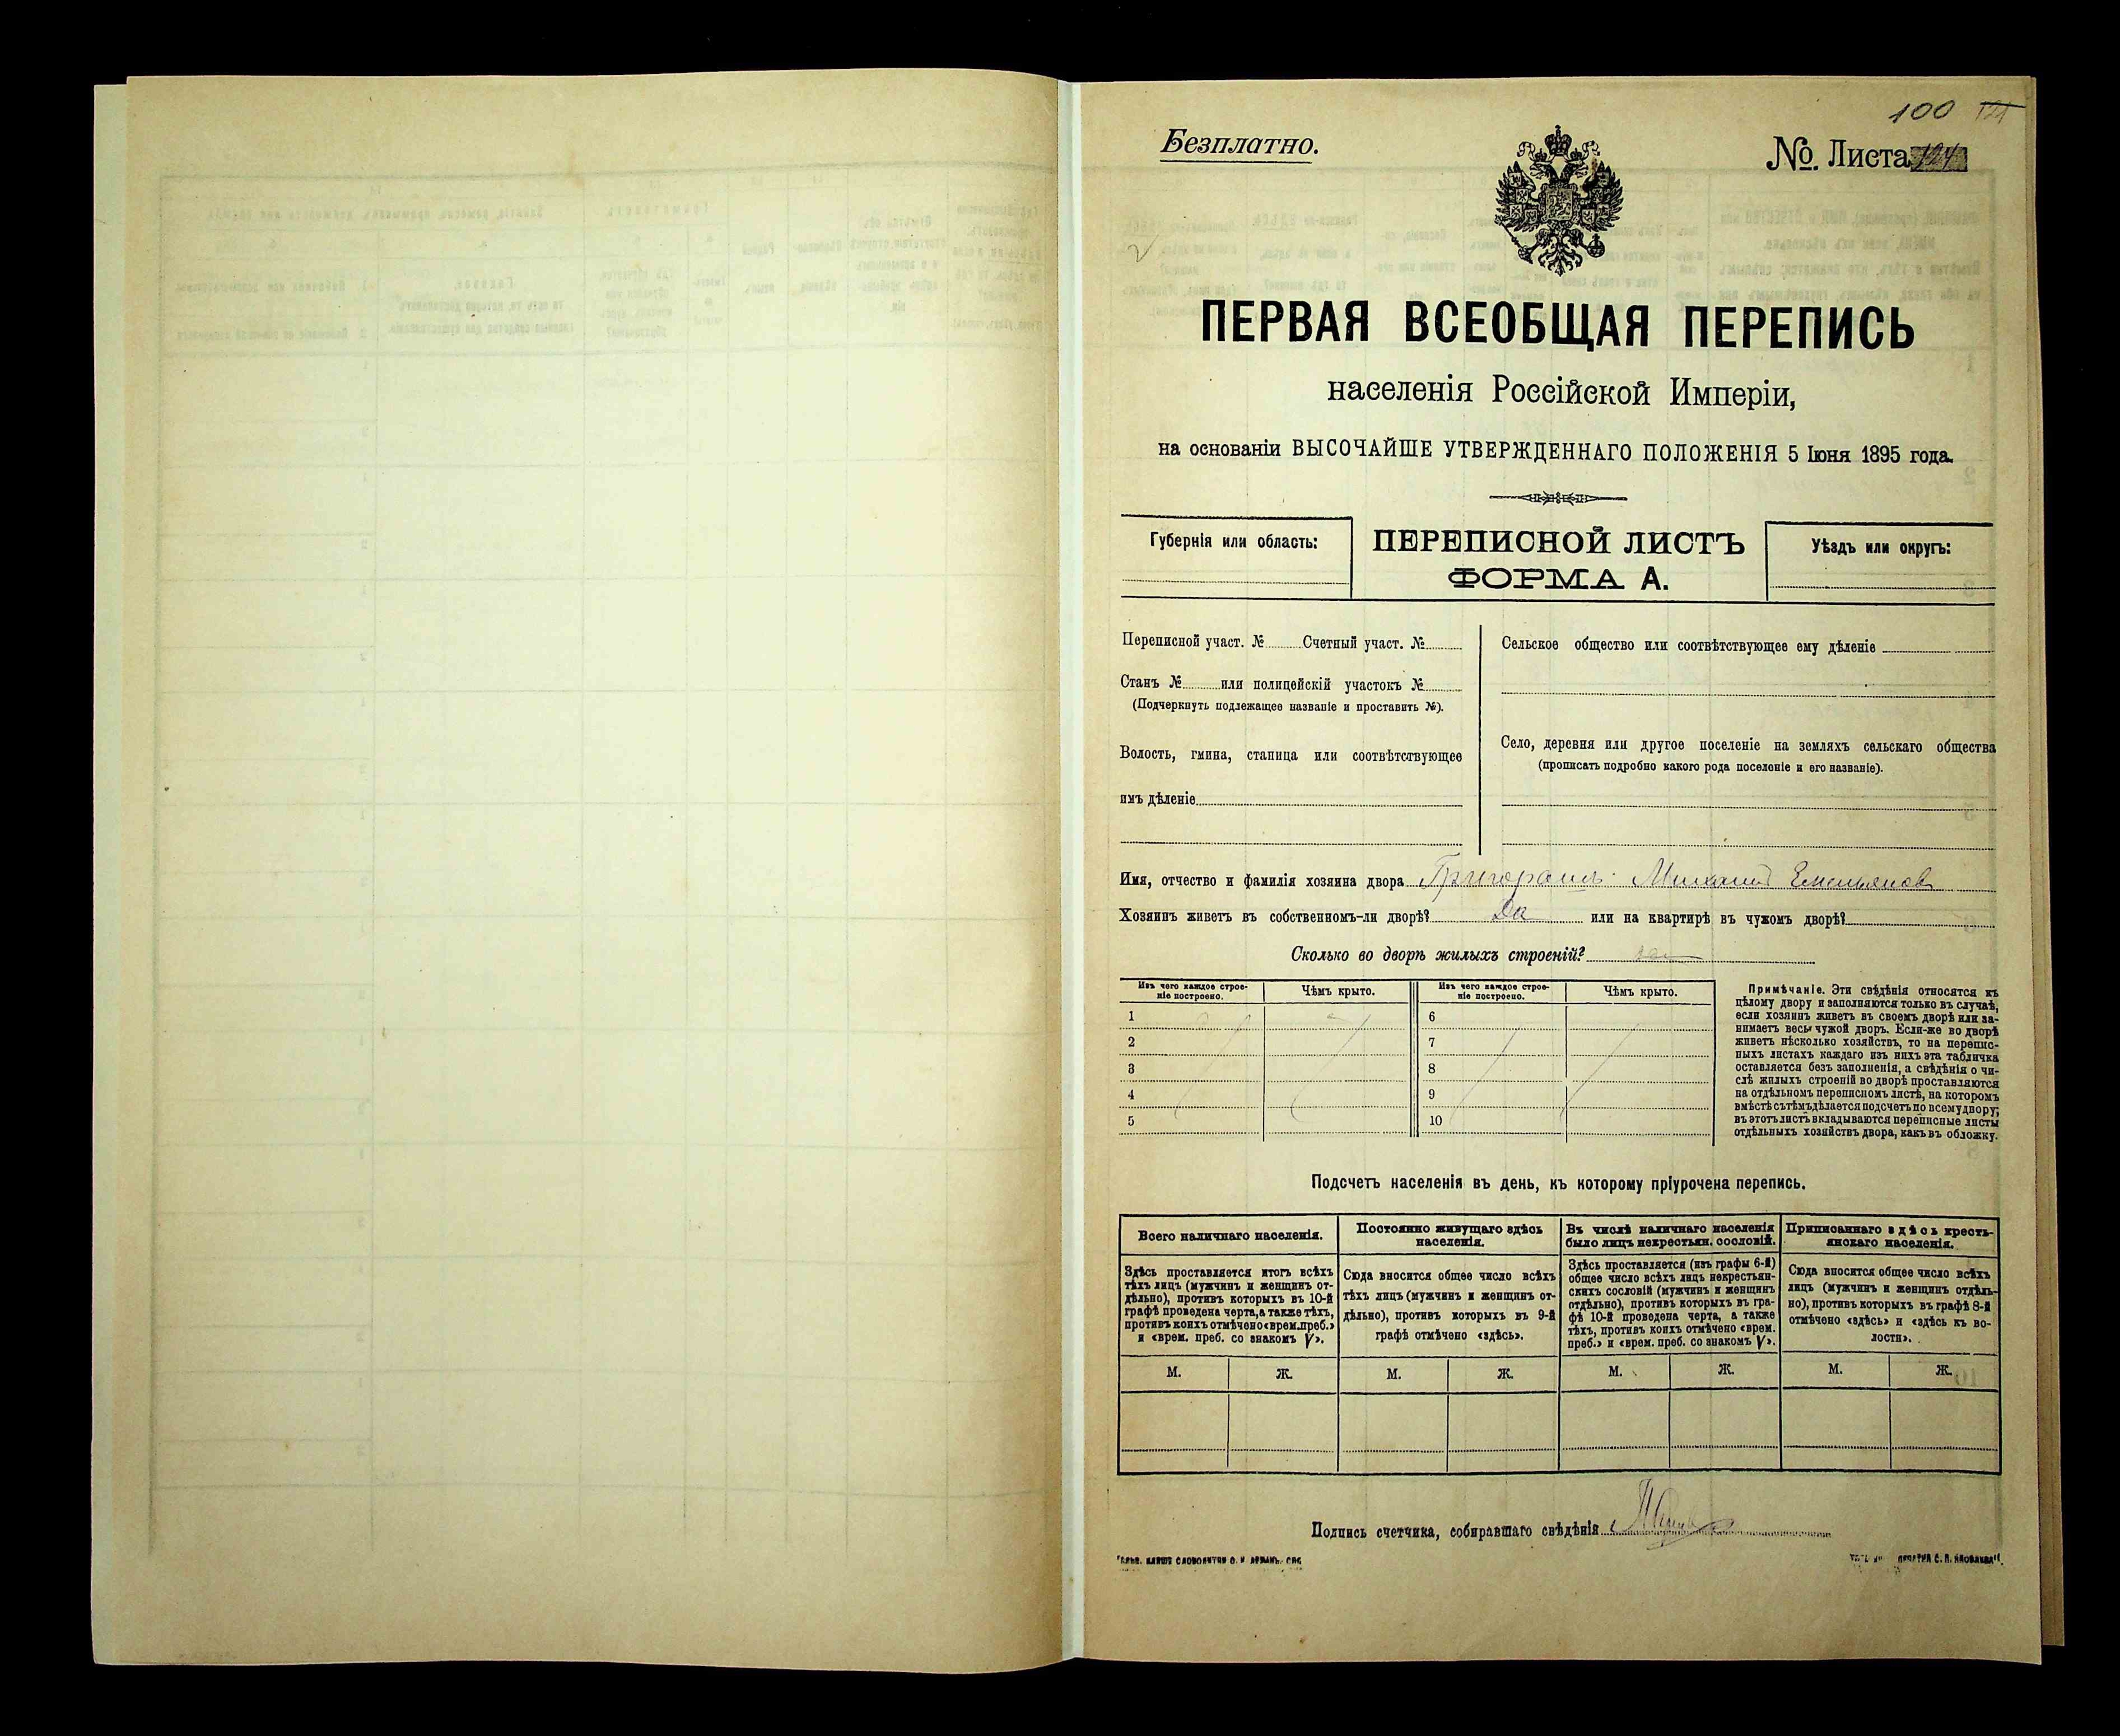 100
Безплатно.
№ Листа
ПЕРВАЯ ВСЕОБЩАЯ ПЕРЕПИСЬ
населенія Россійской Имперіи,
на основаніи ВЫСОЧАЙШЕ УТВЕРЖДЕННАГО ПОЛОЖЕНІЯ 5 Іюня 1895 года.
Губернія или область:
ПЕРЕПИСНОЙ ЛИСТЪ
ФОРМА А.
Уѣздъ или округъ:
Переписной участ. № Счетный участ. №
Станъ № или полицейскій участокъ №
(Подчеркнуть подлежащее названіе и проставить №).
Волость, гмина, станица или соотвѣтствующее
имъ дѣленіе
Сельское общество или соотвѣтствующее ему дѣленіе
Село, деревня или другое поселеніе на земляхъ сельскаго общества
(прописать подробно какого рода поселеніе и его названіе).
Имя, отчество и фамилія хозяина двора Григорашъ Михаилъ Емельяновъ
Хозяинъ живетъ въ собственномъ-ли дворѣ? Да или на квартирѣ въ чужомъ дворѣ?
Сколько во дворѣ жилыхъ строеній?
Изъ чего каждое строе-
ніе построено.
Чѣмъ крыто.
Изъ чего каждое строе-
ніе построено.
Чѣмъ крыто.
1 6
2 7
3 8
4 9
5 10
Примѣчаніе. Эти свѣдѣнія относятся къ
цѣлому двору и заполняются только въ случаѣ,
если хозяинъ живетъ въ своемъ дворѣ или за-
нимаетъ весь чужой дворъ. Если-же во дворѣ
живетъ нѣсколько хозяйствъ, то на перепис-
ныхъ листахъ каждаго изъ нихъ эта табличка
оставляется безъ заполненія, а свѣдѣнія о чи-
слѣ жилыхъ строеній во дворѣ проставляются
на отдѣльномъ переписномъ листѣ, на которомъ
вмѣстѣ съ тѣмъ дѣлается подсчетъ по всему двору;
въ этотъ листъ вкладываются переписные листы
отдѣльныхъ хозяйствъ двора, какъ въ обложку.
Подсчетъ населенія въ день, къ которому пріурочена перепись.
Всего наличнаго населенія.
Здѣсь проставляется итогъ всѣхъ
тѣхъ лицъ (мужчинъ и женщинъ от-
дѣльно), противъ которыхъ въ 10-й
графѣ проведена черта, а также тѣхъ,
противъ коихъ отмѣчено «врем. преб.»
и «врем. преб. со знакомъ V».
Постоянно живущаго здѣсь
населенія.
Сюда вносится общее число всѣхъ
тѣхъ лицъ (мужчинъ и женщинъ от-
дѣльно), противъ которыхъ въ 9-й
графѣ отмѣчено «здѣсь».
Въ числѣ наличнаго населенія
было лицъ некрестьян. сословій.
Здѣсь проставляется (изъ графы 6-й)
общее число всѣхъ лицъ некрестьян-
скихъ сословій (мужчинъ и женщинъ
отдѣльно), противъ которыхъ въ гра-
фѣ 10-й проведена черта, а также
тѣхъ, противъ коихъ отмѣчено «врем.
преб.» и «врем. преб. со знакомъ V».
Приписаннаго здѣсь кресть-
янскаго населенія.
Сюда вносится общее число всѣхъ
лицъ (мужчинъ и женщинъ отдѣль-
но), противъ которыхъ въ графѣ 8-й
отмѣчено «здѣсь» и «здѣсь къ во-
лости».
М. Ж. М. Ж. М. Ж. М. Ж.
Подпись счетчика, собиравшаго свѣдѣнія